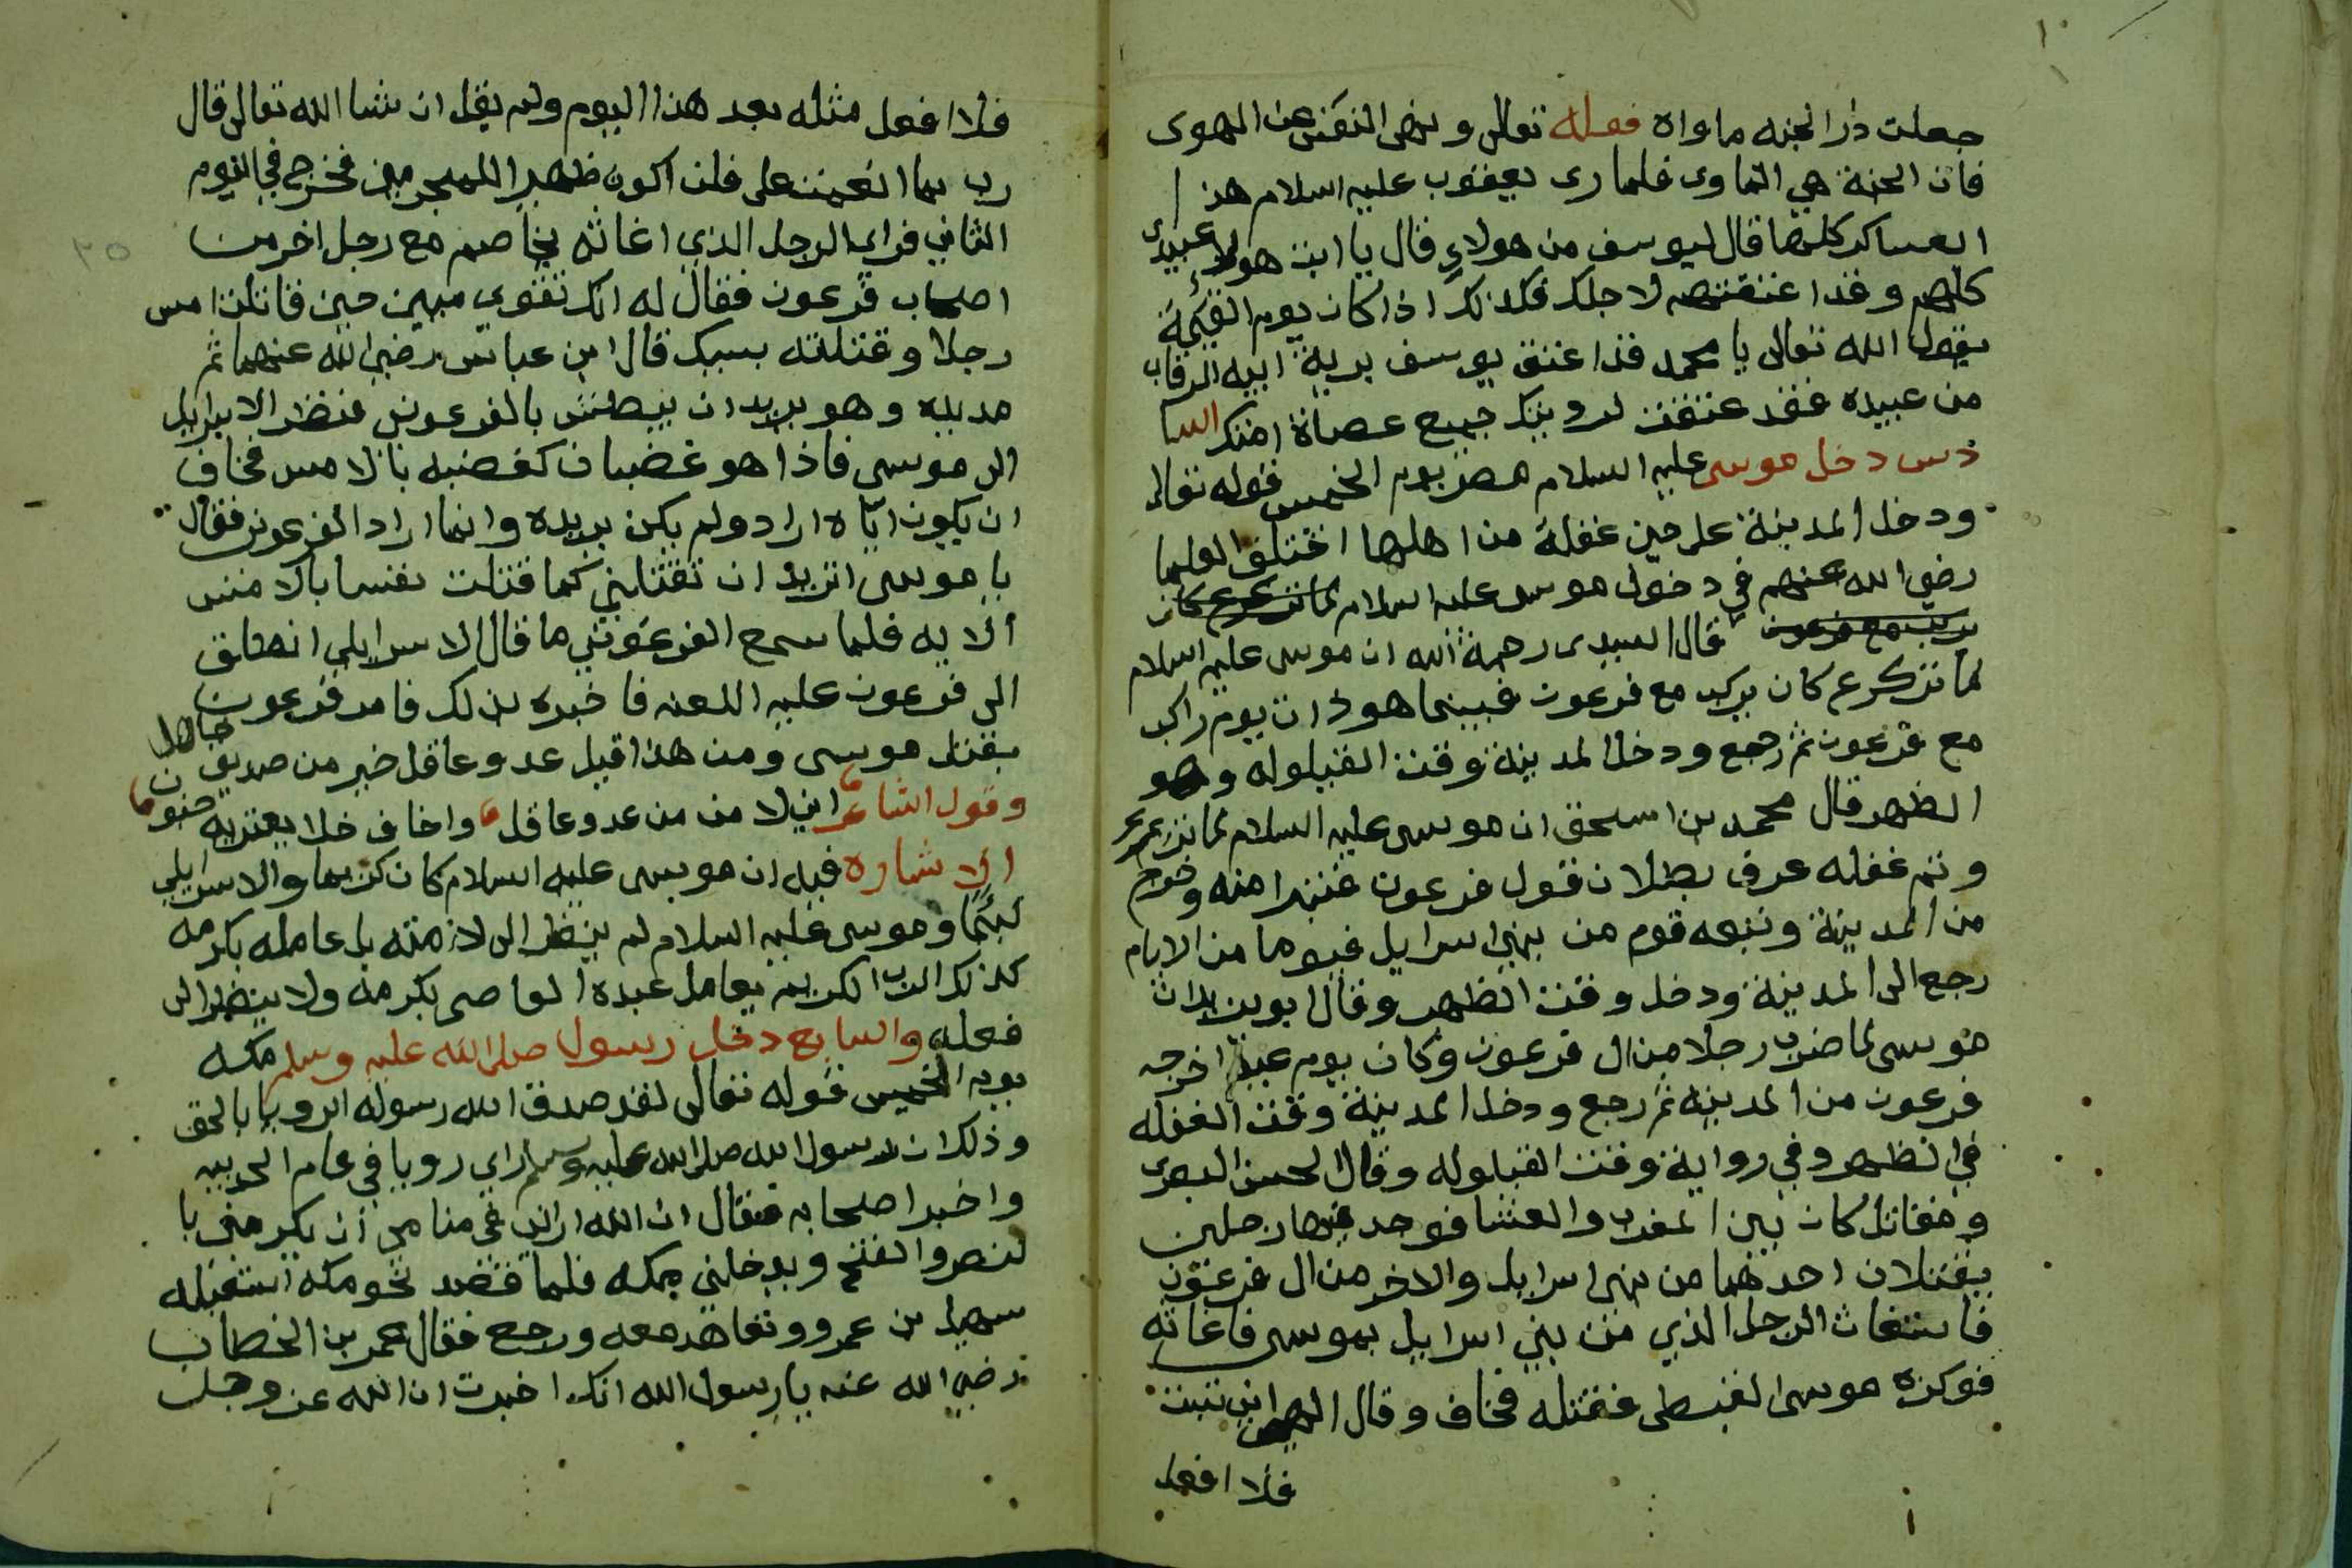 جعلت دار الجنه ماواه قوله تعالى ونهى النفس عن الهوى
فان الجنة هي الماوى فلما رى يعقوب عليه السلام هذ
العساكر كلها قال ليوسف من هولاء قال يا ابت هولاء عبيدى
كلهم وقد اعتقتهم لاجلك فكذلك اذا كان يوم القيمة
يقول الله تعالى يا محمد قد اعتق يوسف برية ابيه الرقاب
من عبيده فقد عتقت لرويتك جميع عصاة امتك السا
دس دخل موسى عليه السلام مصر يوم الخميس قوله تعالى
ودخل المدينة على حين غفلة من اهلها اختلف العلما
رضي الله عنهم في دخول موسى عليه السلام لما ترعرع كان
يركب مع فرعون قال السيدى رحمة الله ان موسى عليه السلام
لما تزكرع كان يركب مع فرعون فبينما هو ذات يوم راكب
مع فرعون ثم رجع ودخل المدينة وقت القيلوله وهو
الظهر قال محمد بن اسحق ان موسى عليه السلام لما ترعرع
وتم غفله عرف بطلان قول فرعون فتبرا منه وخرج
من المدينة وتبعه قوم من بني اسرايل فيوما من الايام
رجع الى المدينة ودخل وقت الظهر وقال ابوين يدان
موسى لما ضرب رجلا من ال فرعون وكان يوم عيد اخرجه
فرعون من المدينه ثم رجع ودخل المدينة وقت الغفله
في الظهر وفي رواية وقت القيلوله وقال الحسن البصرى
ومقاتل كان بين المغرب والعشا فوجد فيها رجلين
يقتتلان احدهما من بنى اسرايل والاخر من ال فرعون
فاستغاث الرجل الذي من بني اسرايل بموسى فاغاثه
فوكزه موسى القبطى فقتله فخاف وقال الهى اني تبت
فلا افعل
فلا افعل مثله بعد هذا اليوم ولم يقل ان شا الله تعالى قال
رب بما انعمت على فلن اكون ظهيرا للمجرمين فخرج في اليوم
الثاني فراى الرجل الذي اغاثه يخاصم مع رجل اخر من
اصحاب فرعون فقال له انك تقوي مبين حين قاتلت امس
رجلا وقتلته بسبك قال ابن عباس رضي الله عنهما ثم
مد يديه وهو يريد ان يبطش بالفرعونى فنظر الاسرايلي
الى موسى فاذا هو غضبان كغضبه بالامس فخاف
ان يكون اياه اراد ولم يكن يريده وانما اراد الفرعونى فقال
يا موسى اتريد ان تقتلني كما قتلت نفسا بالامس
الايه فلما سمع الفرعوني ما قال الاسرايلي انطلق
الى فرعون عليه اللعنه فاخبره بذلك فامر فرعون
بقتل موسى ومن هذا قيل عدو عاقل خير من صديق جاهل
وقول الشاعر اني لا من من عدو عاقل واخاف خلا يعتريه جنون
الاشاره فيه ان موسى عليه السلام كان كريما والاسرايلي
لئيما وموسى عليه السلام لم ينظر الى لازمته بل عامله بكرمه
كذلك الرب الكريم يعامل عبده العاصى بكرمه ولا ينظر الى
فعله والسابع دخل رسول صلى الله عليه وسلم مكه
يوم الخميس قوله تعالى لقد صدق الله رسوله الرويا بالحق
وذلك ان رسول الله صلى الله عليه وسلم راى رويا في عام الحديبيه
واخبر اصحابه فقال ان الله اراني في منامى ان يكرمنى با
لنصر والفتح ويدخلني مكه فلما قصد نحو مكه استقبله
سهيل بن عمرو وتعاهد معه ورجع فقال عمر بن الخطاب
رضي الله عنه يا رسول الله انك اخبرت ان الله عز وجل